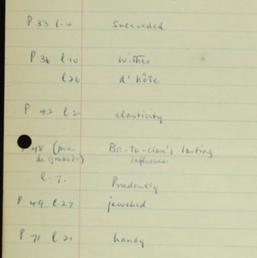 P 33 l. 4 succeeded
P 36 l. 10 withes
l 26 d'hôte
P 42 l. 2 elasticity
P 48 Bo-to-dan's lasting
influence
l. 7. Prudently
P 49 l. 27 jewelled
P 71 l. 21 handy